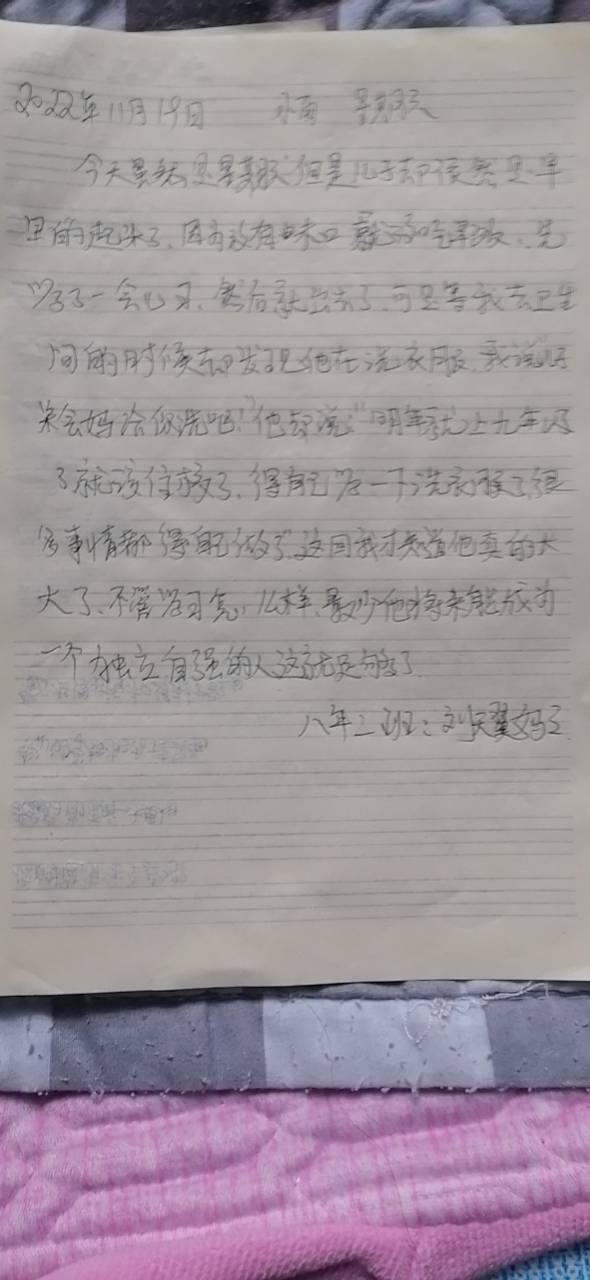 2022年11月19日 小雨 星期六
今天虽然是星期六但是儿子却依然是早
早的起来了、因为没有味口就没吃早饭、先
学了一会心习、然后就出去了、可是等我去卫生
间的时候却发现他在洗衣服、我说"
来会妈给你洗吧!"他却说:"明年就上九年级
了就该住校了、得自己学一下洗衣服了很
多事情都得自己做了"这回我才知道他真的长
大了、不管学习怎么样、最少他将来能成为
一个独立自强的人这就足够了
八年二班:刘天翼妈妈